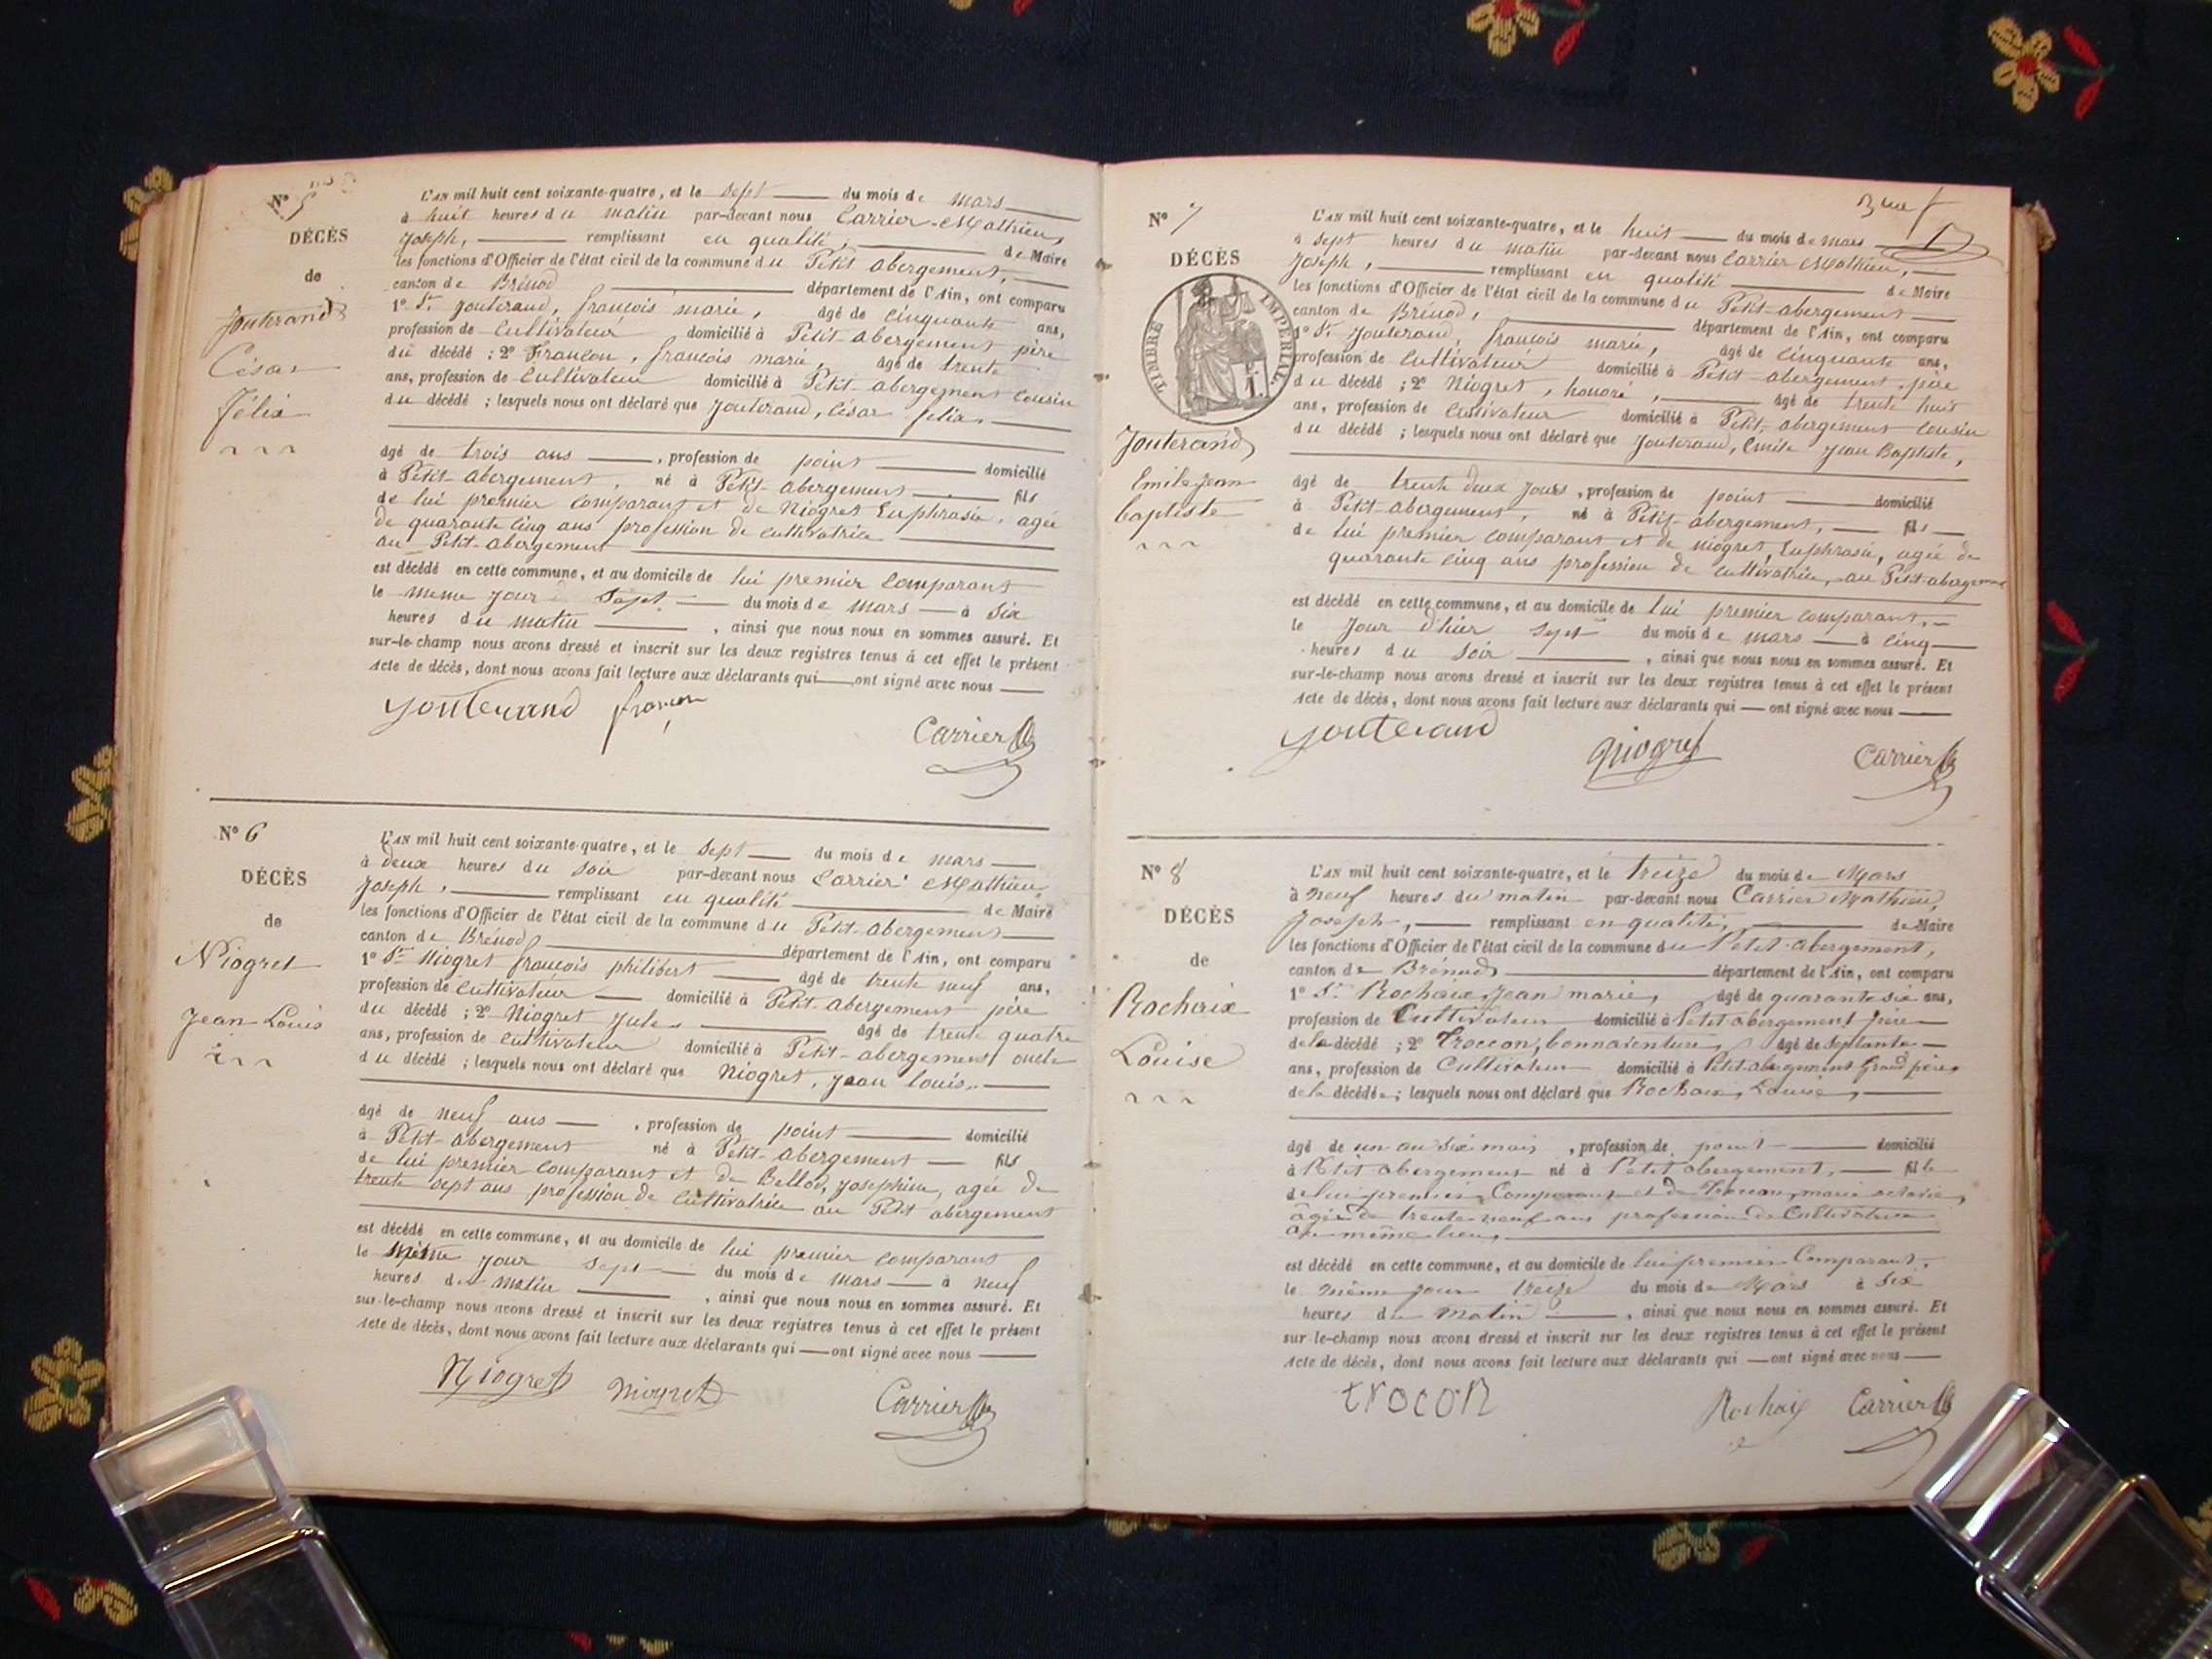 N° 5
DÉCÈS
de
Jouterand
César
Félix
L'AN mil huit cent soixante-quatre, et le sept du mois de mars
à huit heures du matin par-devant nous Carrier Mathieu,
Joseph, remplissant en qualité, de Maire
les fonctions d'Officier de l'état civil de la commune du Petit abergement,
canton de Brénod département de l'Ain, ont comparu
1° Sr. Jouterand, françois marie, âgé de cinquante ans,
profession de cultivateur domicilié à Petit abergement père
du décédé ; 2° Françon, françois marie, âgé de trente
ans, profession de cultivateur domicilié à Petit-abergement cousin
du décédé ; lesquels nous ont déclaré que Jouterand, césar felix
âgé de trois ans, profession de point domicilié
à Petit-abergement, né à Petit-abergement fils
de lui premier comparant et de Niogret Euphrasie, agée
de quarante cinq ans profession de cultivatrice
au Petit-abergement
est décédé en cette commune, et au domicile de lui premier comparant
le meme jour sept du mois de mars à six
heures du matin, ainsi que nous nous en sommes assuré. Et
sur-le-champ nous avons dressé et inscrit sur les deux registres tenus à cet effet le présent
Acte de décès, dont nous avons fait lecture aux déclarants qui ont signé avec nous
Jouterand françon
Carrier
N° 6
DÉCÈS
de
Niogret
Jean Louis
L'AN mil huit cent soixante-quatre, et le sept du mois de mars
à deux heures du soir par-devant nous Carrier Mathieu
Joseph, remplissant en qualité de Maire
les fonctions d'Officier de l'état civil de la commune du Petit-abergement
canton de Brénod département de l'Ain, ont comparu
1° Sr Niogret françois philibert âgé de trente neuf ans,
profession de cultivateur domicilié à Petit-abergement père
du décédé ; 2° Niogret Jules âgé de trente quatre
ans, profession de cultivateur domicilié à Petit-abergement oncle
du décédé ; lesquels nous ont déclaré que Niogret, jean louis
âgé de neuf ans, profession de point domicilié
à Petit-abergement né à Petit-abergement fils
de lui premier comparant et de Josephine, agée de
trente sept ans profession de cultivatrice au Petit abergement
est décédé en cette commune, et au domicile de lui premier comparant
le même jour sept du mois de mars à neuf
heures du matin, ainsi que nous nous en sommes assuré. Et
sur-le-champ nous avons dressé et inscrit sur les deux registres tenus à cet effet le présent
Acte de décès, dont nous avons fait lecture aux déclarants qui ont signé avec nous
Niogret niogret
Carrier
N° 7
DÉCÈS
TIMBRE IMPÉRIAL.
Jouterand
Emile jean
baptiste
L'AN mil huit cent soixante-quatre, et le huit du mois de mars
à sept heures du matin par-devant nous Carrier Mathieu,
Joseph, remplissant en qualité de Maire
les fonctions d'Officier de l'état civil de la commune du Petit-abergement
canton de Brénod, département de l'Ain, ont comparu
1° Sr Jouterand, françois marie, âgé de cinquante ans,
profession de cultivateur domicilié à Petit-abergement, père
du décédé ; 2° Niogret, honoré, âgé de trente huit
ans, profession de cultivateur domicilié à Petit-abergement cousin
du décédé ; lesquels nous ont déclaré que Jouterand, Emile Jean Baptiste,
âgé de trente deux jours, profession de point domicilié
à Petit-abergement, né à Petit-abergement, fils
de lui premier comparant et de niogret, Euphrasie, agée de
quarante cinq ans profession de cultivatrice, au Petit-abergement
est décédé en cette commune, et au domicile de lui premier comparant,
le jour d'hier sept du mois de mars à cinq
heures du soir, ainsi que nous nous en sommes assuré. Et
sur-le-champ nous avons dressé et inscrit sur les deux registres tenus à cet effet le présent
Acte de décès, dont nous avons fait lecture aux déclarants qui ont signé avec nous
Jouterand
Niogret
Carrier
N° 8
DÉCÈS
de
Rochaix
Louise
L'AN mil huit cent soixante-quatre, et le treize du mois de Mars
à neuf heures du matin par-devant nous Carrier Mathieu,
Joseph, remplissant en qualité, de Maire
les fonctions d'Officier de l'état civil de la commune du Petit-abergement,
canton de Brénod département de l'Ain, ont comparu
1° Sr. Rochaix, Jean marie, âgé de quarante six ans,
profession de Cultivateur domicilié à Petit abergement père
de la décédé ; 2° Troccon, bonnaventure, âgé de septante
ans, profession de Cultivateur domicilié à Petit-abergement Grand père
de la décédée ; lesquels nous ont déclaré que Rochaix, Louise,
âgé de un an six mois, profession de point domicilié
à Petit abergement né à Petit abergement, fille
de lui premier Comparant et de Troccon, marie octavie,
âgée de trente neuf ans profession de Cultivatrice
au même lieu,
est décédé en cette commune, et au domicile de lui premier Comparant,
le même jour treize du mois de Mars à six
heures du matin, ainsi que nous nous en sommes assuré. Et
sur-le-champ nous avons dressé et inscrit sur les deux registres tenus à cet effet le présent
Acte de décès, dont nous avons fait lecture aux déclarants qui ont signé avec nous
trocon Rochaix Carrier